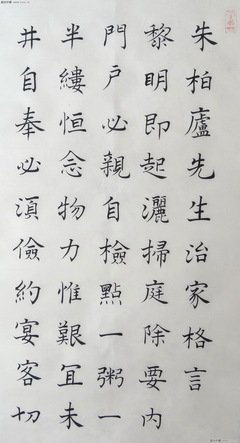 朱柏廬先生治家格言
黎明即起灑掃庭除要内
門戶必親自檢點一粥一
半縷恒念物力惟艱冝未
井自奉必湏儉約宴客切